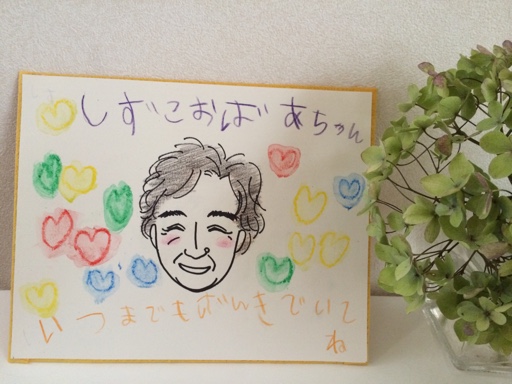 しずこおばあちゃん
いつまでもげんきでいて
ね